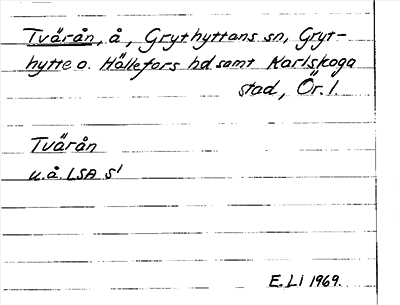 Tvärån, å, Grythyttans sn, Gryt-
hytte o. Hällefors hd samt Karlskoga
stad, Ör. l.
Tvärån
u.å. LSA S1
E. LI 1969.